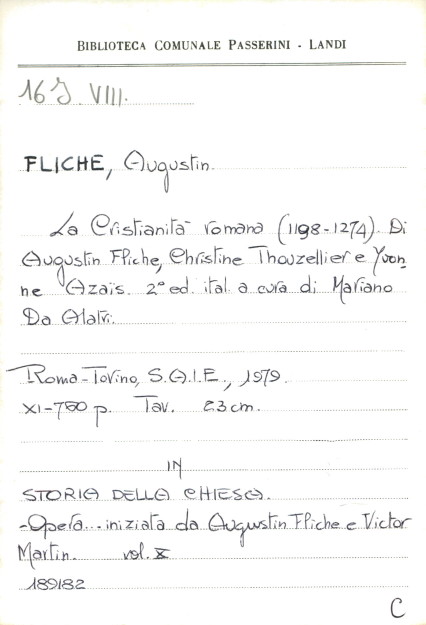 BIBLIOTECA COMUNALE PASSERINI - LANDI
16 J. VIII.
FLICHE, Augustin.
La Cristianità romana (1198-1274). Di
Augustin Fliche, Christine Thouzellier e Yvon-
ne Azais. 2ª ed. ital. a cura di Mariano
Da Alatri.
Roma-Torino, S.A.I.E., 1979.
XI-760 p. Tav. 23 cm.
IN
STORIA DELLA CHIESA.
-Opera... iniziata da Augustin Fliche e Victor
Martin. vol. X
189182
C